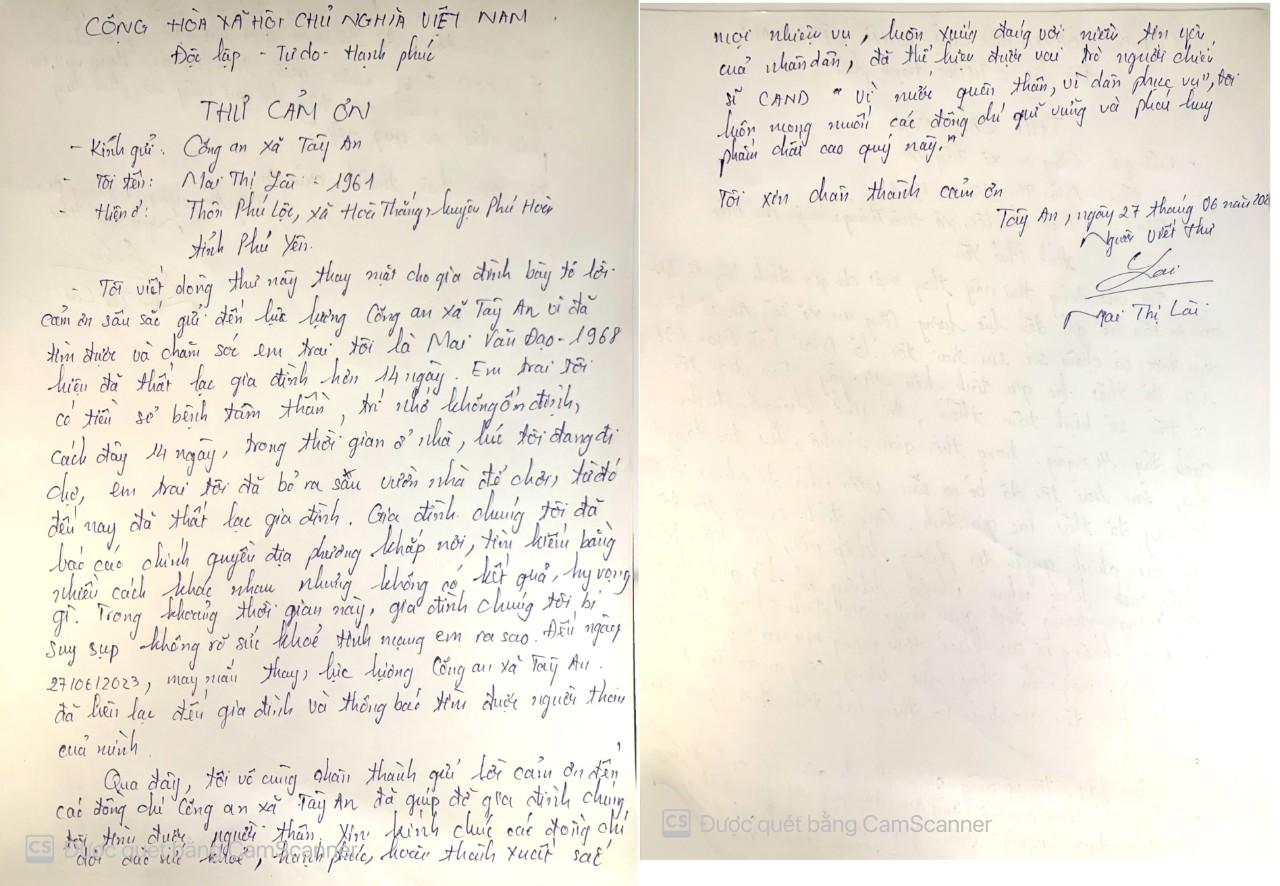 CỘNG HÒA XÃ HỘI CHỦ NGHĨA VIỆT NAM
Độc lập - Tự do - Hạnh phúc
THƯ CẢM ƠN
- Kính gửi: Công an xã Tây An
- Tôi tên: Mai Thị Lài - 1961
- Hiện ở: Thôn Phú Lộc, xã Hoà Thắng, huyện Phú Hoà
tỉnh Phú Yên.
- Tôi viết dòng thư này thay mặt cho gia đình bày tỏ lời
cảm ơn sâu sắc gửi đến lực lượng Công an xã Tây An vì đã
tìm được và chăm sóc em trai tôi là Mai Văn Đạo - 1968
hiện đã thất lạc gia đình hơn 14 ngày. Em trai tôi
có tiền sử bệnh tâm thần, trí nhớ không ổn định,
cách đây 14 ngày, trong thời gian ở nhà, lúc tôi đang đi
chợ, em trai tôi đã bỏ ra sân vườn nhà để chơi, từ đó
đến nay đã thất lạc gia đình. Gia đình chúng tôi đã
báo các chính quyền địa phương khắp nơi, tìm kiếm bằng
nhiều cách khác nhau nhưng không có kết quả, hy vọng
gì. Trong khoảng thời gian này, gia đình chúng tôi bị
suy sụp không rõ sức khoẻ tính mạng em ra sao. Đến ngày
27/06/2023, may mắn thay, lực lượng Công an xã Tây An
đã liên lạc đến gia đình và thông báo tìm được người thân
của mình.
Qua đây, tôi vô cùng chân thành gửi lời cảm ơn đến
các đồng chí Công an xã Tây An đã giúp đỡ gia đình chúng
tôi tìm được người thân. Xin kính chúc các đồng chí
dồi dào sức khoẻ, hạnh phúc, hoàn thành xuất sắc
CS Được quét bằng CamScanner
mọi nhiệm vụ, luôn xứng đáng với niềm tin yêu
của nhân dân, đã thể hiện được vai trò người chiến
sĩ CAND "vì nước quên thân, vì dân phục vụ", tôi
luôn mong muốn các đồng chí giữ vững và phát huy
phẩm chất cao quý này."
Tôi xin chân thành cảm ơn
Tây An, ngày 27 tháng 06 năm 202
Người viết thư
Lài
Mai Thị Lài
CS Được quét bằng CamScanner